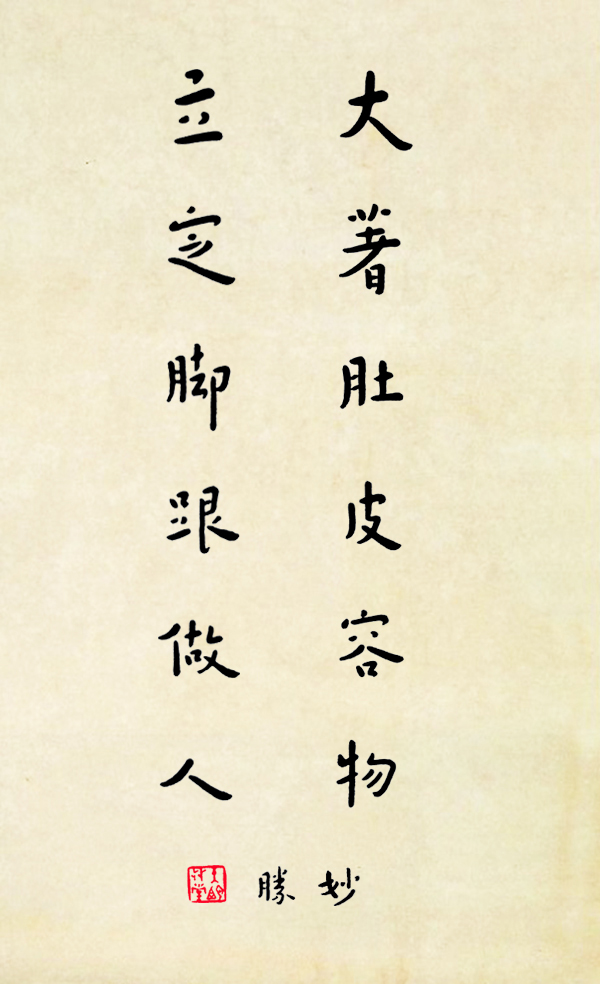 大著肚皮容物
立定脚跟做人
妙勝